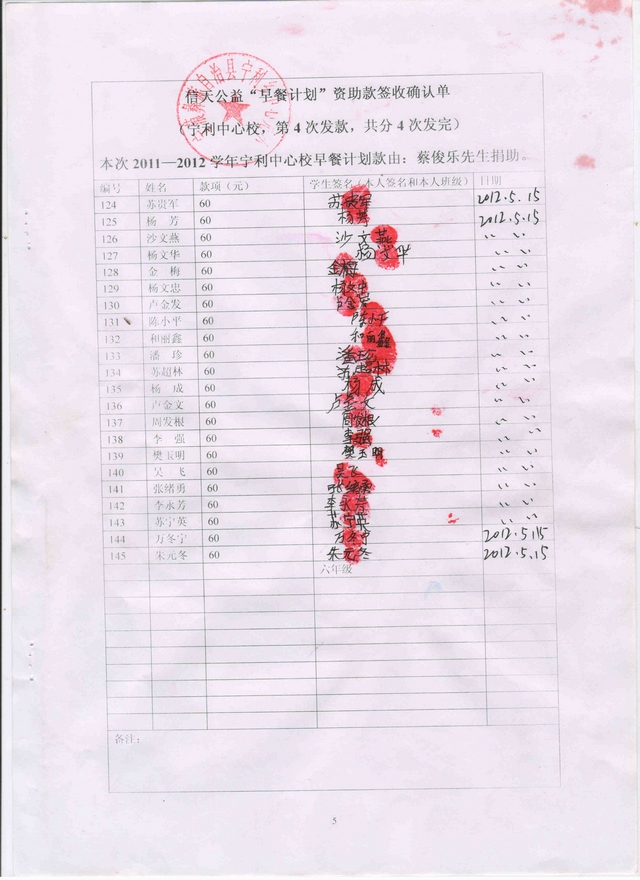 信天公益“早餐计划”资助款签收确认单
（宁利中心校，第 4 次发款，共分 4 次发完）
本次 2011—2012 学年宁利中心校早餐计划款由：蔡俊乐先生捐助。
编号 姓名 款项（元） 学生签名（本人签名和本人班级） 日期
124 苏贵军 60 苏贵军 2012.5.15
125 杨 芳 60 杨芳 2012.5.15
126 沙文燕 60 沙文燕 〃 〃
127 杨文华 60 杨文华 〃 〃
128 金 梅 60 金梅 〃 〃
129 杨文忠 60 杨文忠 〃 〃
130 卢金发 60 卢金发 〃 〃
131 陈小平 60 陈小平 〃 〃
132 和丽鑫 60 和丽鑫 〃 〃
133 潘 珍 60 潘珍 〃 〃
134 苏超林 60 苏超林 〃 〃
135 杨 成 60 杨成 〃 〃
136 卢金文 60 卢金文 〃 〃
137 周发根 60 周发根 〃 〃
138 李 强 60 李强 〃 〃
139 樊玉明 60 樊玉明 〃 〃
140 吴 飞 60 吴飞 〃 〃
141 张绪勇 60 张绪勇 〃 〃
142 李永芳 60 李永芳 〃 〃
143 苏宁英 60 苏宁英 〃 〃
144 万冬宁 60 万冬宁 2012.5.15
145 朱元冬 60 朱元冬 2012.5.15
六年级
备注：
5